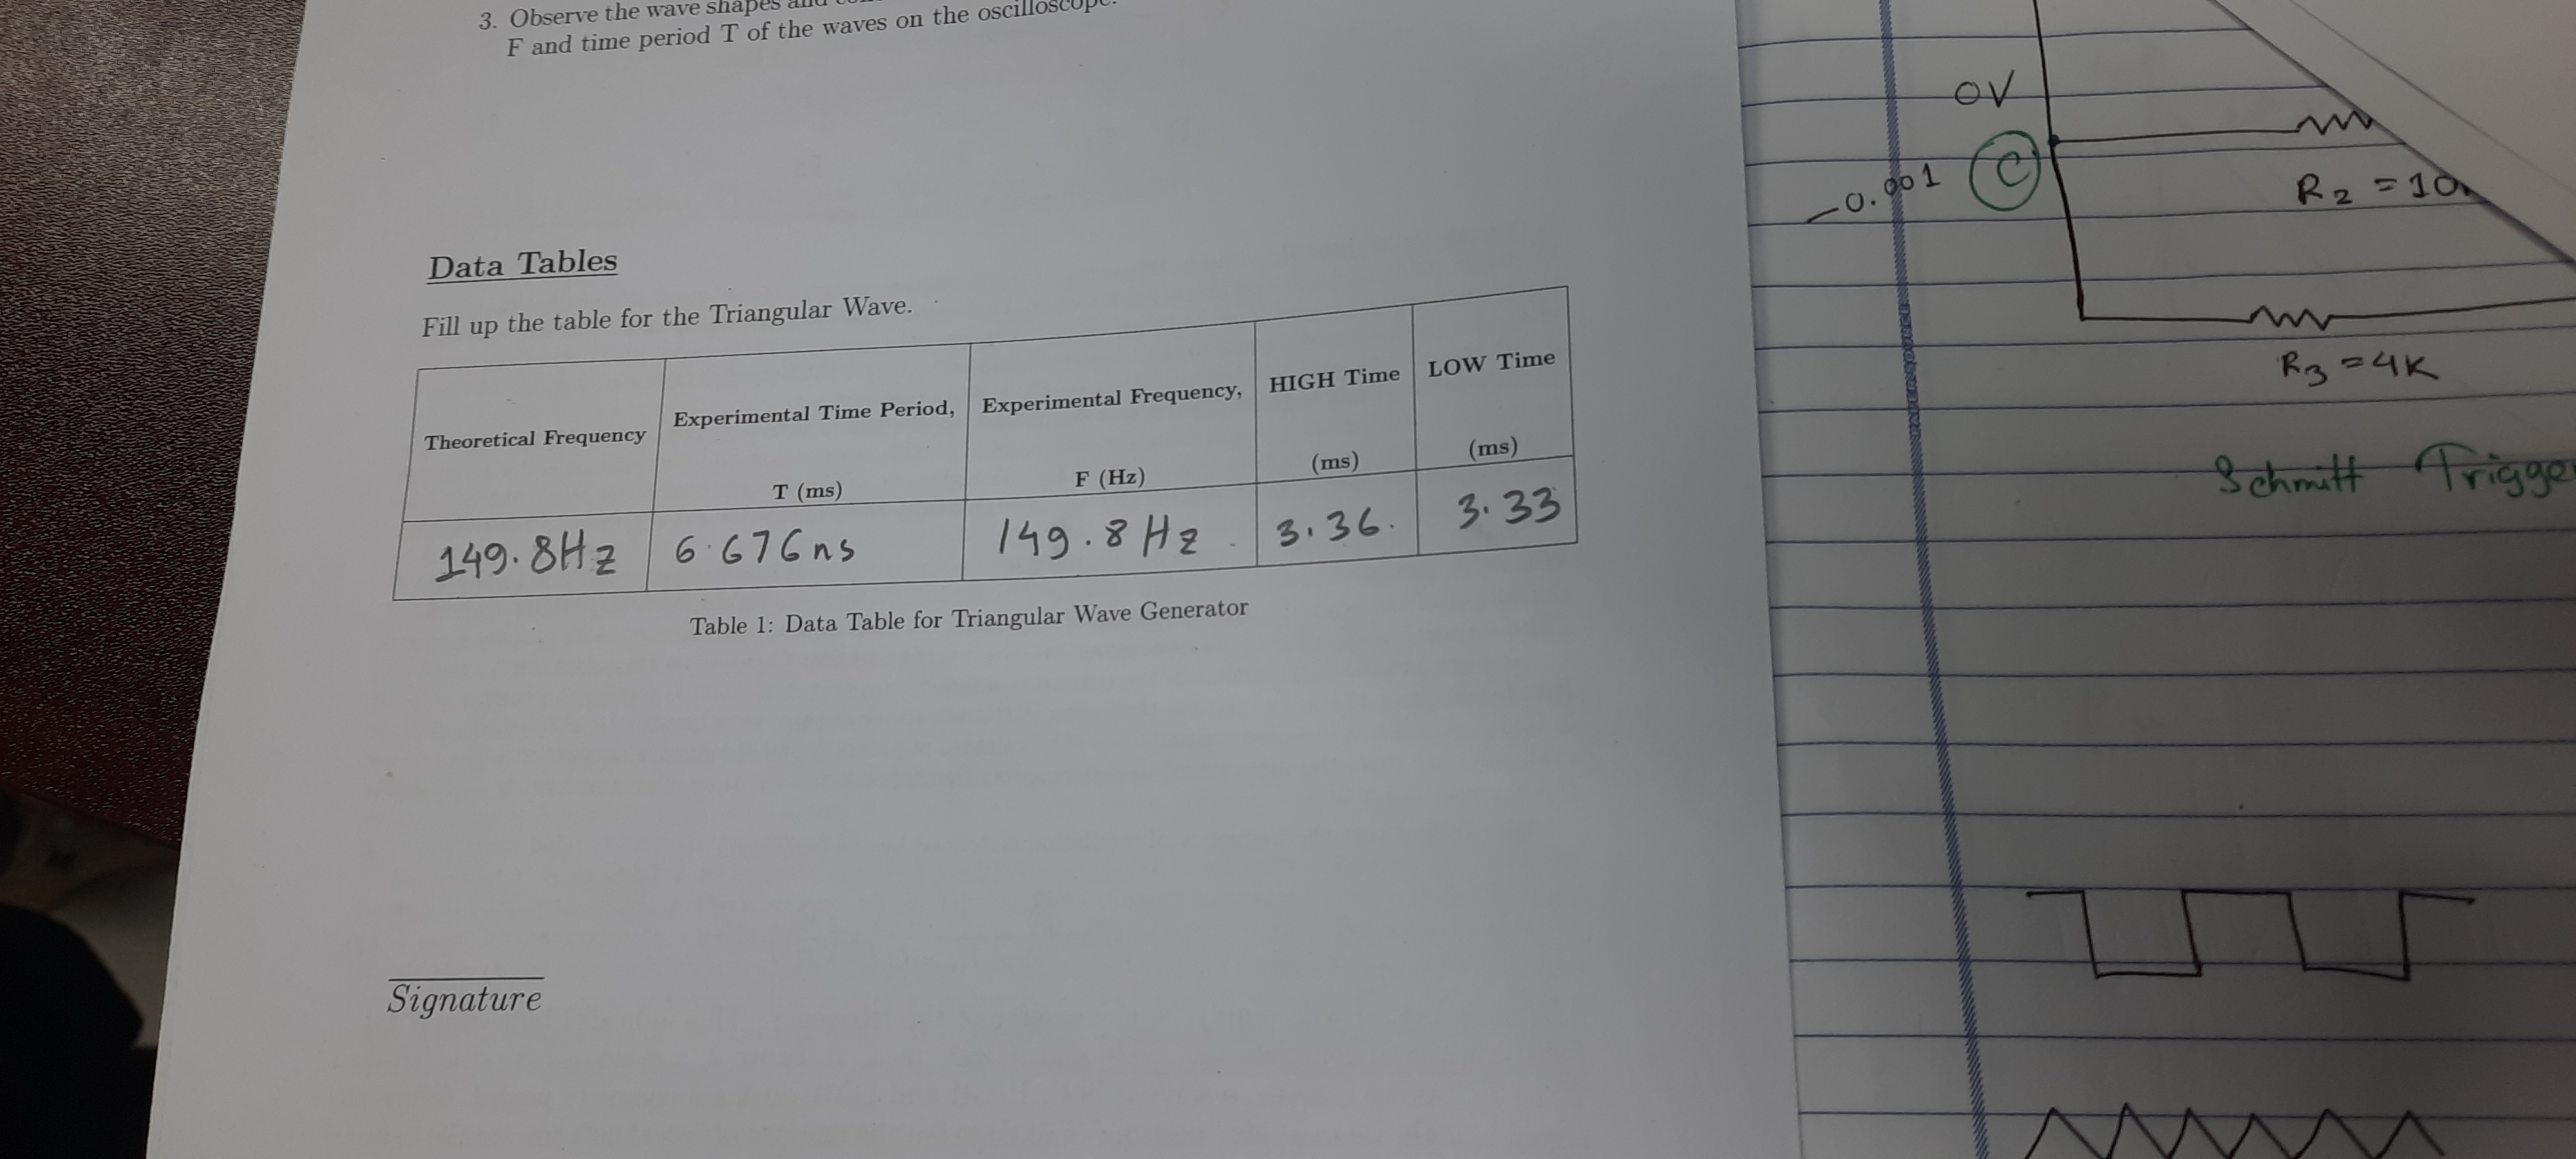 3. Observe the wave shapes and
F and time period T of the waves on the oscilloscope.
Data Tables
Fill up the table for the Triangular Wave.
Theoretical Frequency
Experimental Time Period,
T (ms)
Experimental Frequency,
F (Hz)
HIGH Time
(ms)
LOW Time
(ms)
149.8Hz
6.676ns
149.8Hz
3.36.
3.33
Table 1: Data Table for Triangular Wave Generator
Signature
0V
-0.001 C
R2 = 10
R3 = 4K
Schmitt Trigger